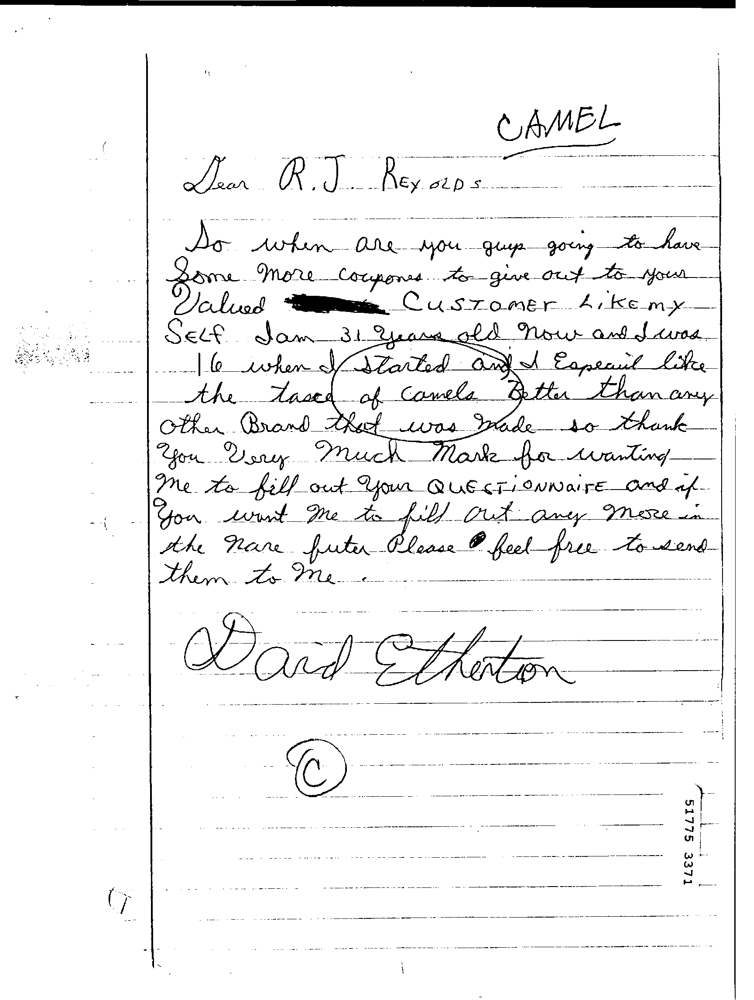 CAMEL
Dear R.J. REYOLDS
So when are you guys going to have
Some More coupones to give out to your
Valued CUSTOMER LiKE MY
SELF I am 31 Years old Now and I was
16 when I started and I Especail like
the tasce of Camels Better than any
other Brand that was Made so thank
You Very Much Mark for wanting
Me to fill out Your QUESTiONNAiRE and if
You want Me to fill out any More in
the Nare futer Please feel free to send
them to Me.
David Etherton
C
51775 3371